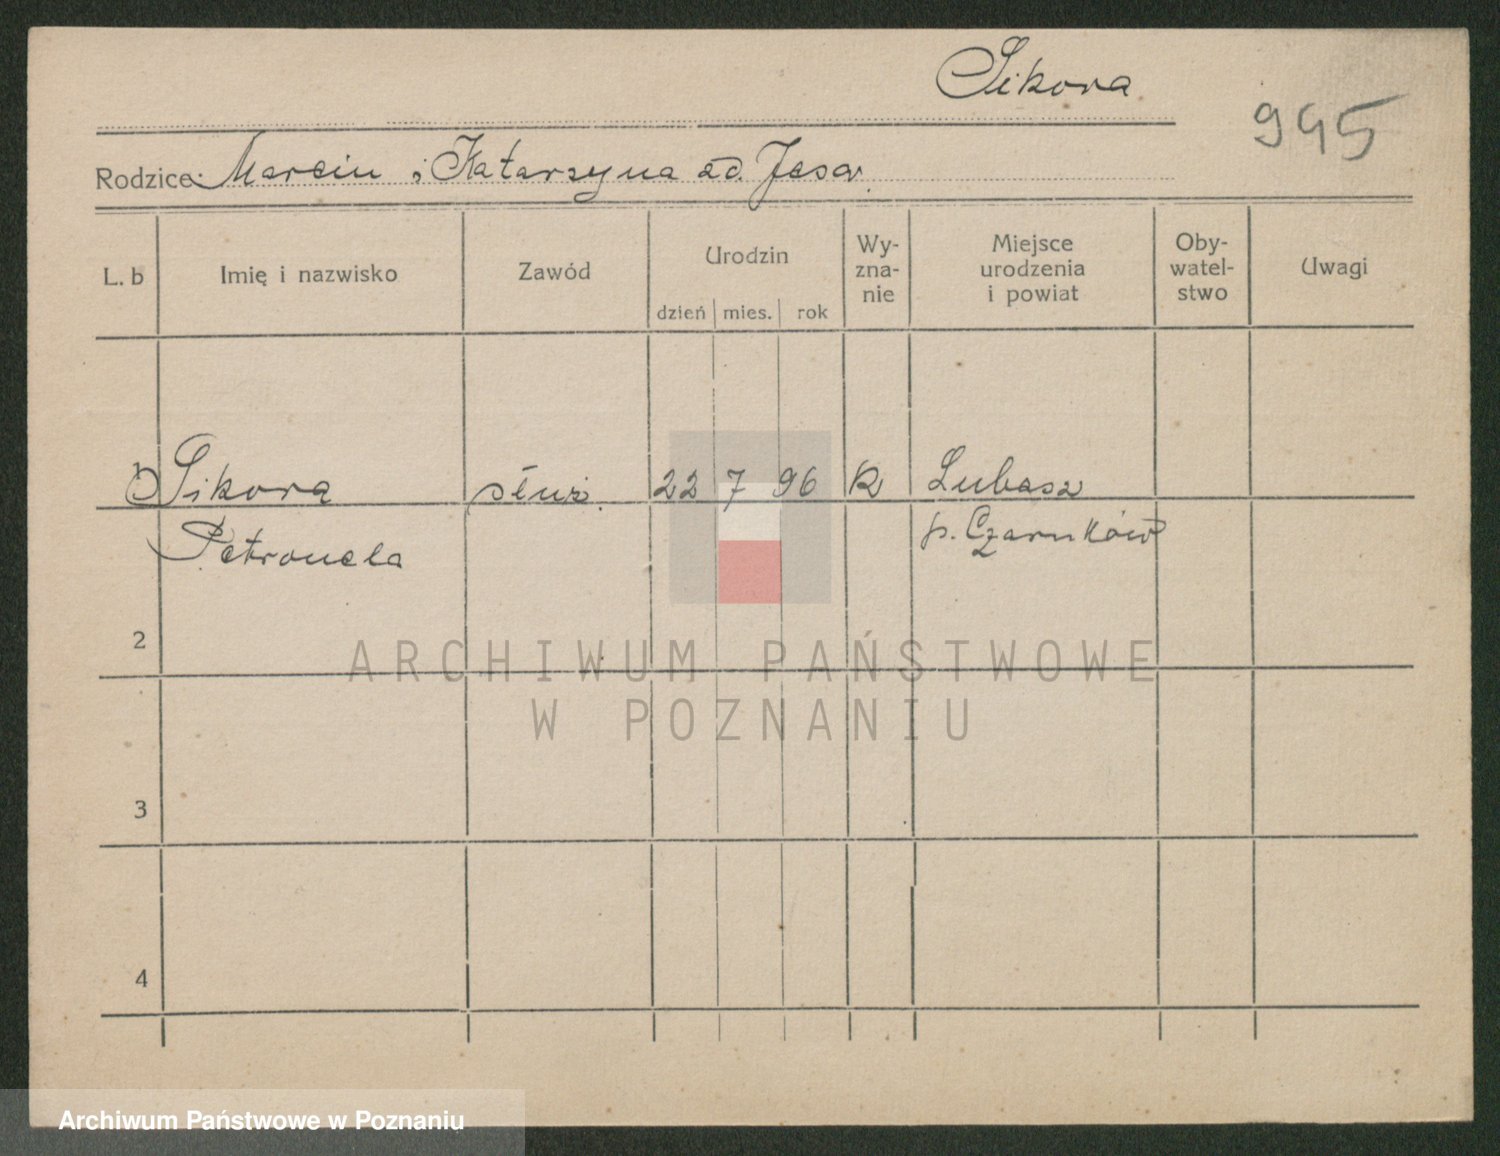 Sikora
945
Rodzice: Marcin i Katarzyna
L. b
Imię i nazwisko
Zawód
Urodzin
dzień mies. rok
Wy-
zna-
nie
Miejsce
urodzenia
i powiat
Oby-
watel-
stwo
Uwagi
1 Sikora służ. 22 7 96 R Lubasz
Petronela p. Czarnków
2
3
4
ARCHIWUM PAŃSTWOWE
W POZNANIU
Archiwum Państwowe w Poznaniu